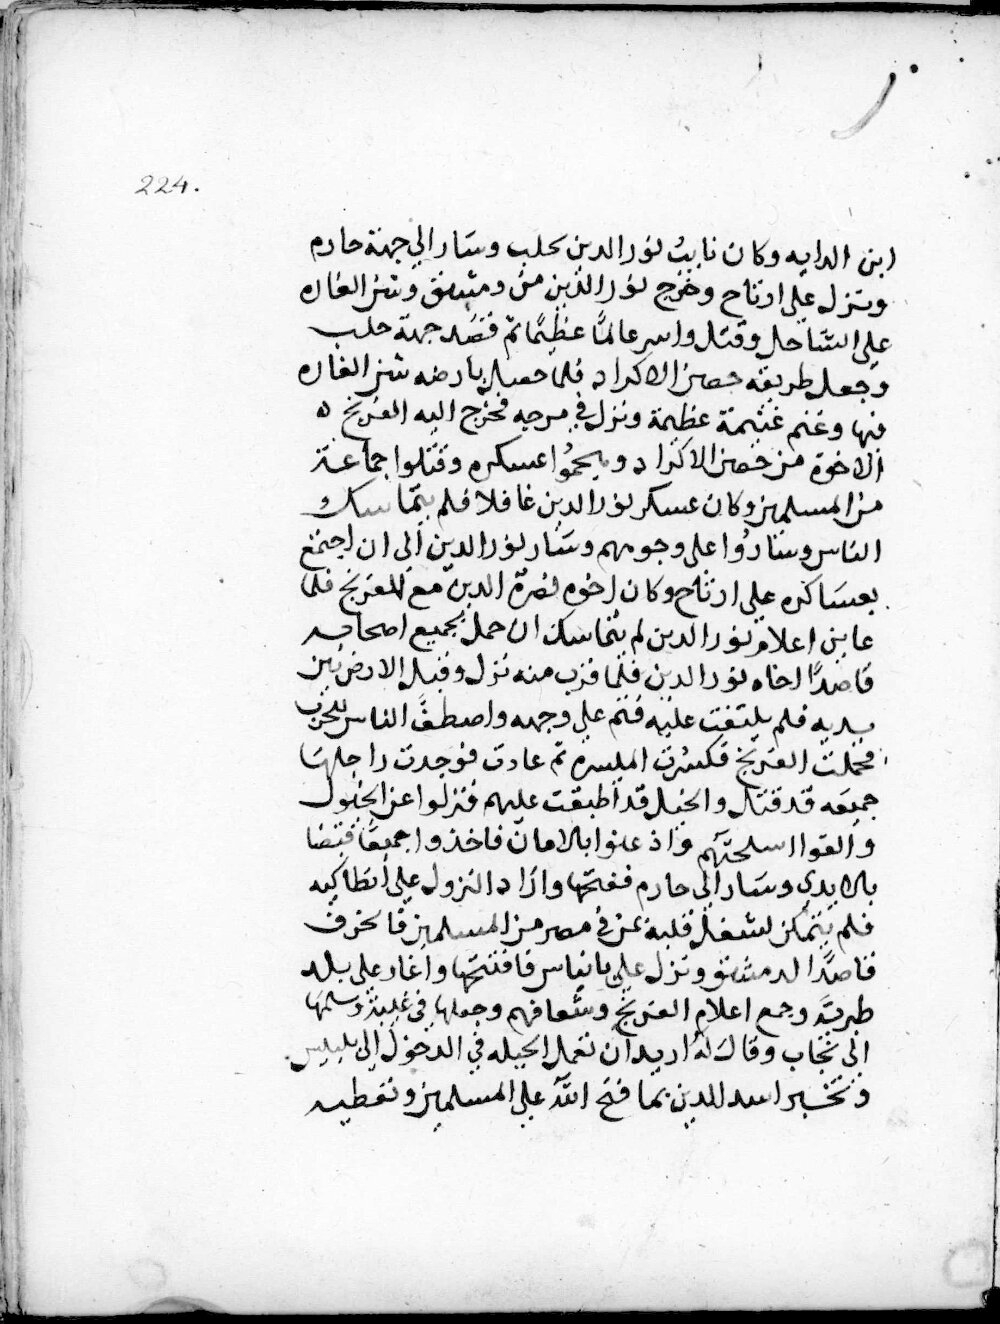 224.
ابن الدايه وكان نايبُ نور الدين بحلب وسار الي جهة حارم
ونزل علي ارتاح وخرج نور الدين من دمشق وشن الغاره
علي الساحل وقتل واسر عالمًا عظيمًا ثم قصد جهة حلب
وجعل طريقه حصن الاكراد فلما حصل بارضه شن الغاره
فيها وغنم غنيمة عظيمة ونزل في مرجه فخرج اليه الفرنج
الاخوة من حصن الاكراد وهجموا عسكره وقتلوا جماعة
من المسلمين وكان عسكر نور الدين غافلا فلم يتماسك
الناس وساروا علي وجوههم وسار نور الدين الي ان اجتمع
بعساكره علي ارتاح وكان اخوه نصرة الدين مع الفرنج فلما
عاين اعلام نور الدين لم يتماسك ان حمل بجميع اصحابه
قاصدًا اخاه نور الدين فلما قرب منه نزل وقبل الارض بين
يديه فلم يلتفت عليه فتم علي وجهه واصطف الناس للحرب
فحملت الفرنج فكسرت الميسره ثم عادت فوجدت راجلها
جميعه قد قتل والخيل قد اطبقت عليهم فنزلوا عن الخيول
والقوا اسلحتهم واذعنوا بالامان فاخذوا جميعًا قبضا
بالايدي وسار الي حارم ففتحها واراد النزول علي انطاكيه
فلم يتمكن لشغل قلبه بمن في مصر من المسلمين فانحرف
قاصدًا لدمشق ونزل علي بانياس فافتتحها واغار علي بلد
طبرية وجمع اعلام الفرنج وشعافهم وجعلها في عيبة وسلمها
الي نجاب وقال له اريد ان تعمل الحيله في الدخول الي بلبيس
وتخبر اسد الدين بما فتح الله علي المسلمين وتعطيه